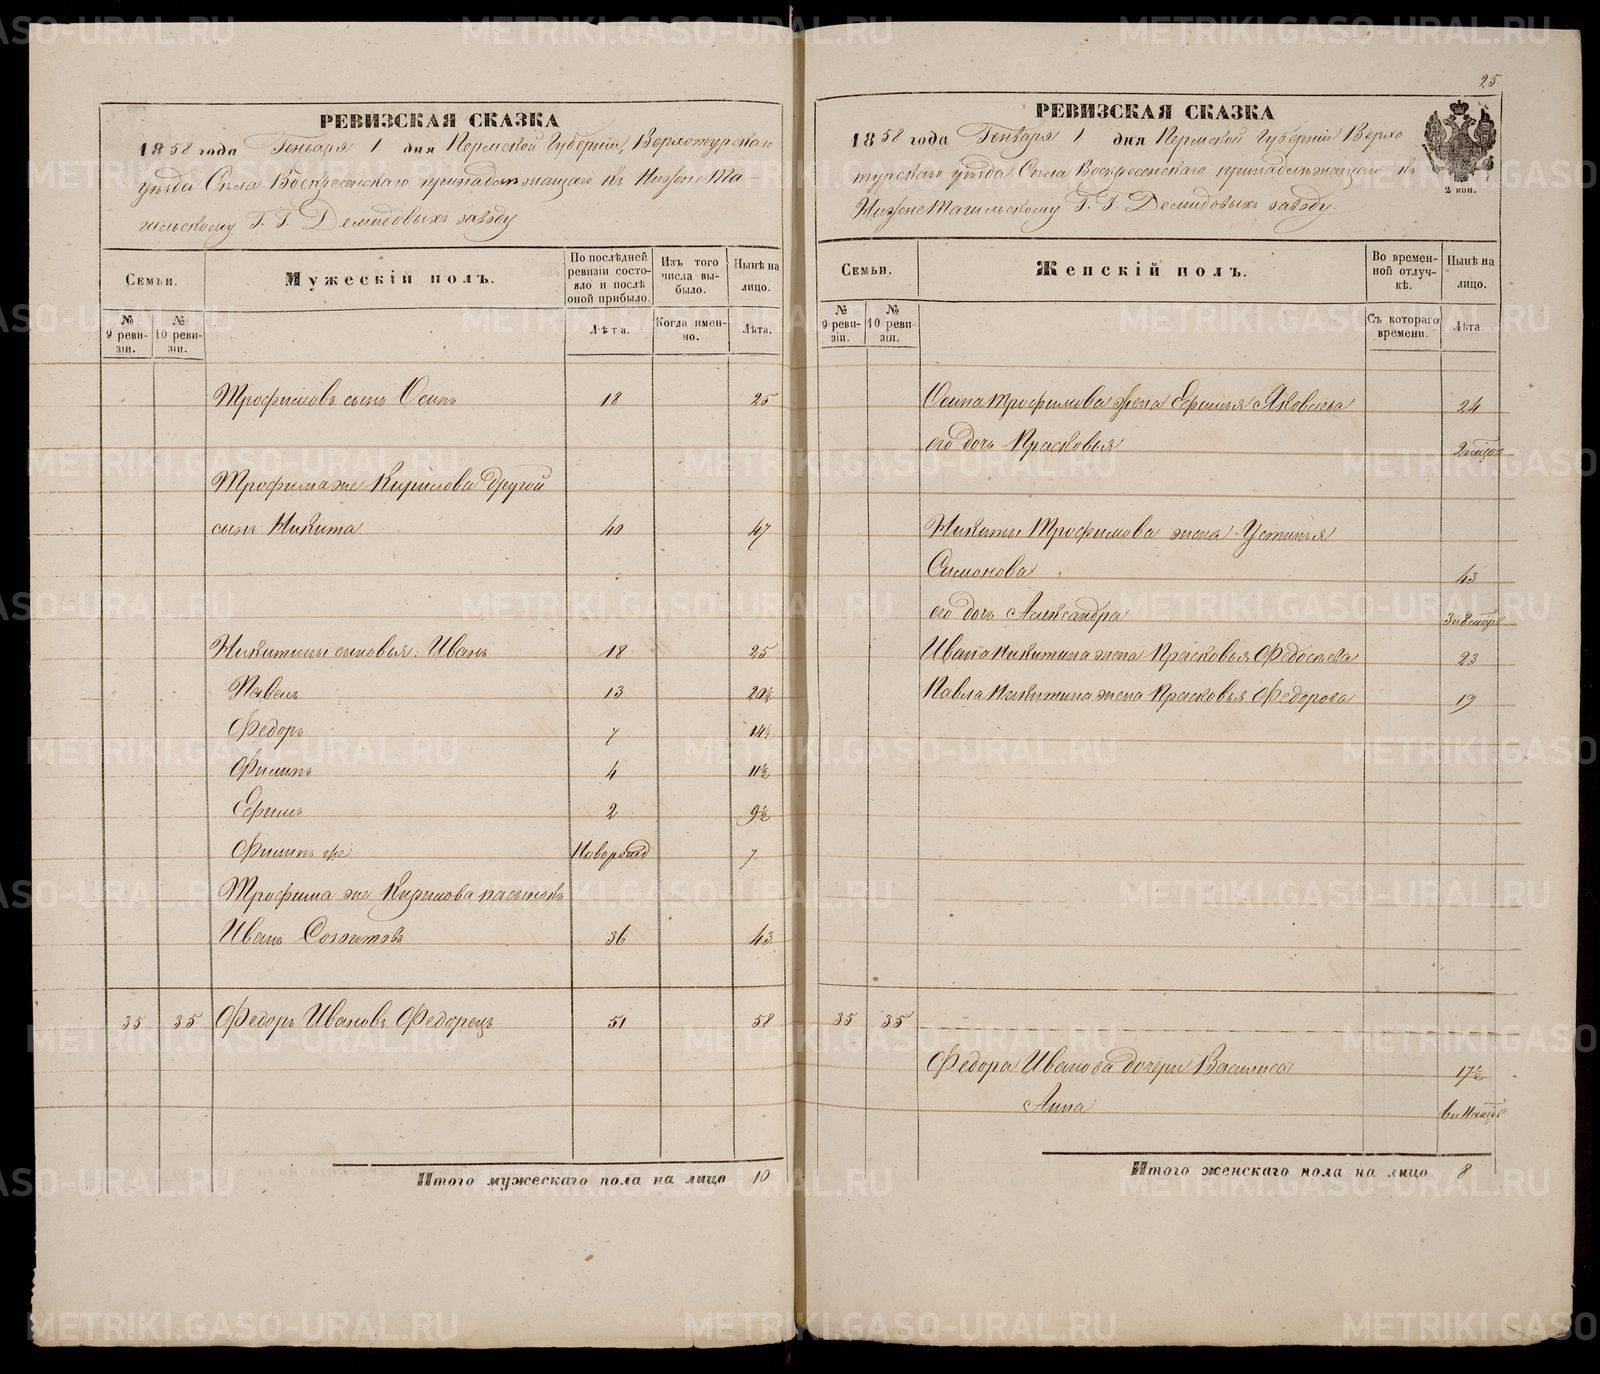 25
РЕВИЗСКАЯ СКАЗКА
1858 года Генваря 1 дня Пермской Губерніи, Верхотурскаго
уѣзда Села Воскресенскаго принадлежащаго къ НижнеТа-
гильскому Г. Г. Демидовыхъ заводу
Семьи.
Мужескій полъ.
По послѣдней ревизіи состояло и послѣ оной прибыло.
Изъ того числа выбыло.
Нынѣ на лицо.
№ 9 ревизіи.
№ 10 ревизіи.
Лѣта.
Когда именно.
Лѣта.
Трофимовъ сынъ Осипъ 18 25
Трофима же Кирилова другой
сынъ Никита 40 47
Никитины сыновья: Иванъ 18 25
Павелъ 13 20½
Федоръ 7 14½
Филипъ 4 11½
Ефимъ 2 9½
Филипъ же Новорожд 7
Трофима же Кирилова пасынокъ
Иванъ 36 43
35 35 Федоръ Ивановъ Федорецъ 51 58
Итого мужескаго пола на лицо 10
РЕВИЗСКАЯ СКАЗКА
1858 года Генваря 1 дня Пермской Губерніи Верхо
турскаго уѣзда Села Воскресенскаго принадлежащаго къ
НижнеТагильскому Г. Г. Демидовыхъ заводу.
2 коп.
Семьи.
Женскій полъ.
Во временной отлучкѣ.
Нынѣ на лицо.
№ 9 ревизіи.
№ 10 ревизіи.
Съ котораго времени.
Лѣта.
Осипа Трофимова жена Ефимья Яковлева 24
его дочь Прасковья 2 мѣсяц
Никиты Трофимова жена Устинья
Симонова 43
его дочь Александра
Ивана Никитина жена Прасковья Федосѣева 23
Павла Никитина жена Прасковья Федорова 19
35 35
Федора Иванова дочери Василиса 17½
Анна
Итого женскаго пола на лицо 8
METRIKI.GASO-URAL.RU